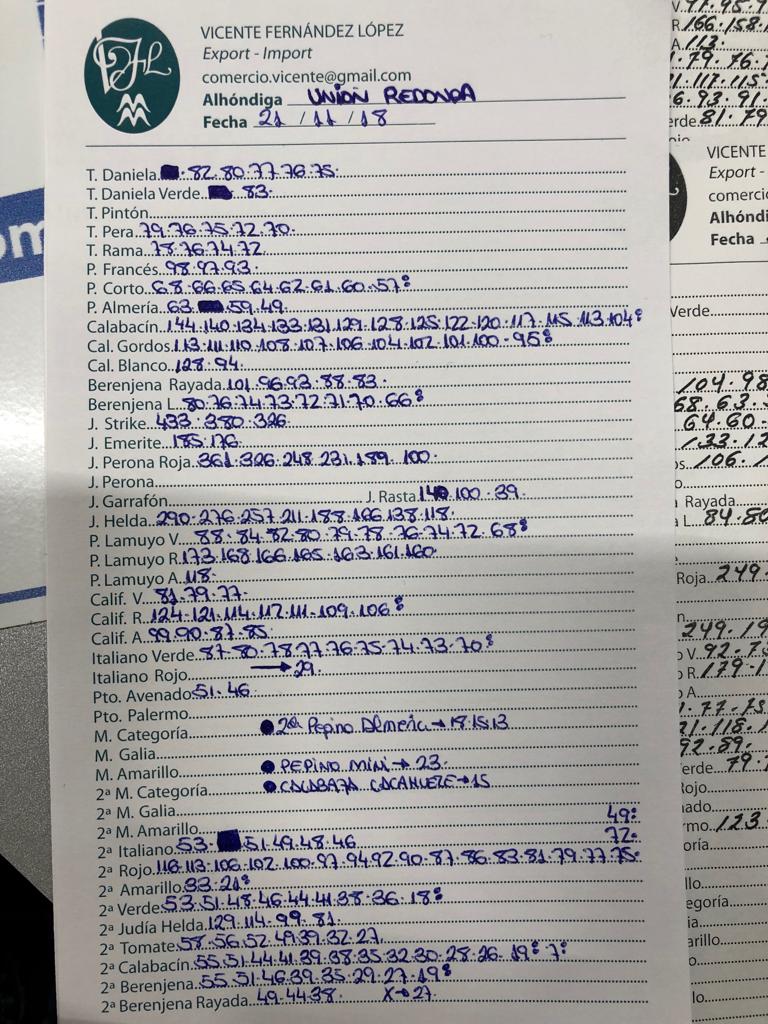 VICENTE FERNÁNDEZ LÓPEZ
Export - Import
comercio.vicente@gmail.com
Alhóndiga UNION REDONDA
Fecha 21 / 11 / 18
T. Daniela. 82.80.77.76.75.
T. Daniela Verde 83.
T. Pintón
T. Pera 79.76.75.72.70.
T. Rama 78.76.74.72.
P. Francés 98.97.93.
P. Corto 68.66.65.64.62.61.60.57:
P. Almería 63. 59.49.
Calabacín 144.140.134.133.131.129.128.125.122.120.117.115.113.104:
Cal. Gordos 113.111.110.108.107.106.104.102.101.100.95:
Cal. Blanco 128.94.
Berenjena Rayada 101.96.93.88.83.
Berenjena L. 80.76.74.73.72.71.70.66:
J. Strike 433.380.326.
J. Emerite 185.176.
J. Perona Roja 361.326.248.231.189.100.
J. Perona
J. Garrafón J. Rasta 100.39.
J. Helda 290.276.257.211.188.166.138.118.
P. Lamuyo V. 88.84.82.80.79.78.76.74.72.68:
P. Lamuyo R. 173.168.166.165.163.161.160.
P. Lamuyo A. 118.
Calif. V. 81.79.77.
Calif. R. 124.121.114.112.111.109.106:
Calif. A. 99.90.87.85.
Italiano Verde 87.80.78.77.76.75.74.73.70:
Italiano Rojo → 29.
Pto. Avenado 51.46
Pto. Palermo
M. Categoría ● 2ª Pepino Almeria → 18.15.13
M. Galia
M. Amarillo ● PEPINO MINI → 23.
2ª M. Categoría ● CACABAZA CACAHUEZE → 15
2ª M. Galia
2ª M. Amarillo 49:
2ª Italiano 53. 51.49.48.46 72.
2ª Rojo 116.113.106.102.100.97.94.92.90.87.86.83.81.79.77.75.
2ª Amarillo 33.21:
2ª Verde 53.51.48.46.44.41.38.36.18:
2ª Judía Helda 129.114.99.81.
2ª Tomate 58.56.52.49.39.32.27.
2ª Calabacín 55.51.44.41.39.38.35.32.30.28.26.19:7:
2ª Berenjena 55.51.46.39.35.29.27.19:
2ª Berenjena Rayada 49.44.38. X→27.
166.158.1
A.113.
79.76.7
117.115
6.93.91.
erde.81.79
VICENTE
Export -
comercio
Alhóndi
Fecha
Verde
104.98
68.63.
64.60.
133.12
106.1
Rayada
L...84.80
Roja..249.
249.19
V.92.7
R.179.1
A
1.77.75
21.118.1
92.89.
erde.79.7
Rojo
ado
mo..123.
oría
llo
egoría
ia
arillo
o
lo